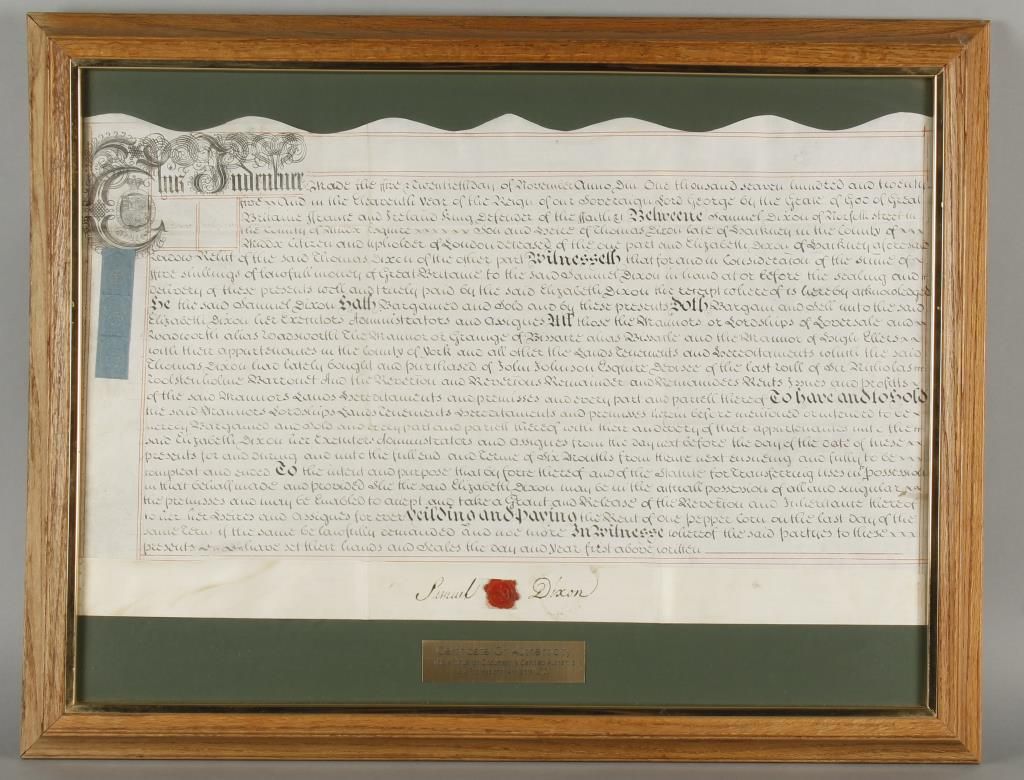 This Indenture Made the ffive & Twentieth day of November Anno Dni One thousand seaven hundred and twenty
ffive And in the Twelveth Year of the Reign of our Soveraign Lord George by the Grace of God of Great
Britaine ffrance and Ireland King Defender of the ffaith &c Betweene Samuel Dixon of Norfolk street in
the County of Middx Esquire Son and Heire of Thomas Dixon late of Hackney in the County of
Middx Citizen and Upholder of London deceased of the one part and Elizabeth Dixon of Hackney aforesaid
Widdow Relict of the said Thomas Dixon of the other part Witnesseth that for and in Consideration of the summe of
ffive shillings of lawfull money of Great Britaine to the said Samuel Dixon in hand at or before the sealing and
delivery of these presents well and truely paid by the said Elizabeth Dixon the receipt whereof is hereby acknowledged
He the said Samuel Dixon Hath Bargained and Sold and by these presents Doth Bargain and Sell unto the said
Elizabeth Dixon her Executors Administrators and Assignes All those the Mannors or Lordships of Loversale and
Wadworth alias Wadsworth The Mannor or Grainge of alias and the Mannor of High Ellers
with their appurtenances in the County of York and all other the Lands Tenements and Hereditaments which the said
Thomas Dixon had lately bought and purchased of John Johnson Esquire Devisee of the last will of Sir Nicholas
Woolstenholme Barronet And the Reverion and Reverions Remainder and Remainders Rents Issues and profitts
of the said Mannors Lands Hereditaments and premisses and every part and parcell thereof To have and to Hold
the said Mannors Lordships Lands Tenements Hereditaments and premisses herein before mentioned or intended to be
hereby Bargained and Sold and every part and parcell thereof with their and every of their appurtenances unto the
said Elizabeth Dixon her Executors Administrators and Assignes from the day next before the day of the date of these
presents for and during and unto the full end and Terme of Six Months from thence next ensueing and fully to be
compleat and ended To the intent and purpose that by force thereof and of the Statute for Transferring uses in possession
in that behalf made and provided She the said Elizabeth Dixon may be in the actuall possession of all and singular
the premisses and may be Enabled to accept and take a Grant and Release of the Reverion and Inheritance thereof
to her her Heires and Assignes for ever Yeilding and Paying the Rent of one Pepper Corn on the last day of the
same Term if the same be lawfully demanded and not more In Witnesse whereof the said partyes to these
presents have set their hands and Seales the day and Year first above written
Samuel Dixon
Certificate Of Authenticity